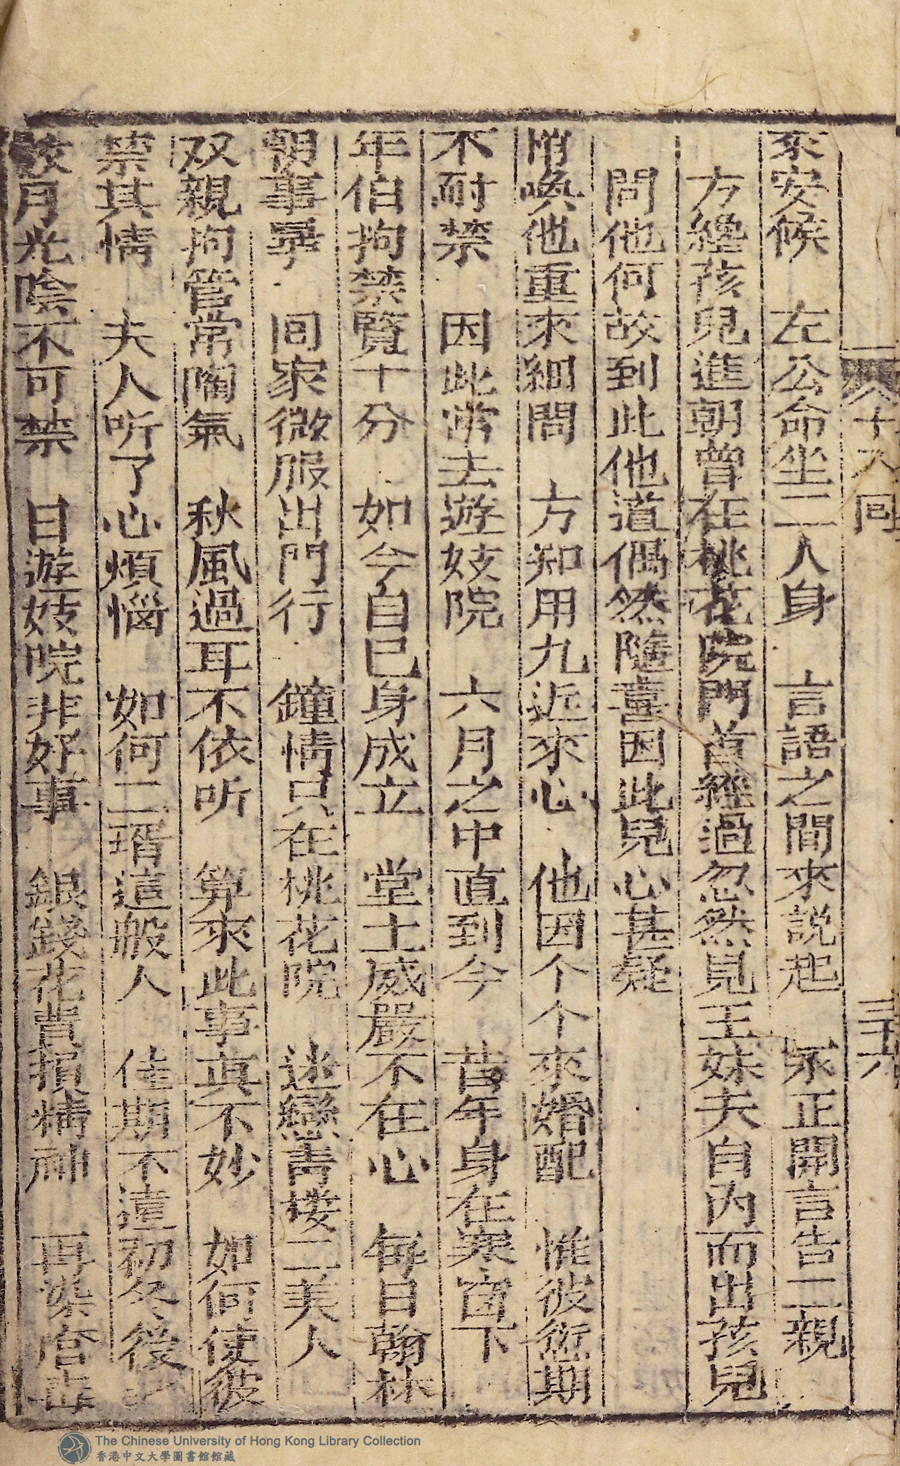 八十八回
三十六
來安候　左公命坐二人身　言語之間來説起　永正開言告二親
方纔孩兒進朝曾在桃花院門首經過忽然見王妹夫自內而出孩兒
問他何故到此他道偶然隨喜因此兒心甚疑
喚他重來細問　方知用九近來心　他因个个來婚配　惟彼愆期
不耐禁　因此常去遊妓院　六月之中直到今　昔年身在寒窗下
年伯拘禁覽十分　如今自巳身成立　堂上威嚴不在心　每日翰林
朝事畢　回家微服出門行　鐘情只在桃花院　迷戀青楼二美人
双親拘管常陶氣　秋風過耳不依听　算來此事真不妙　如何使彼
禁其情　夫人听了心煩惱　如何二壻這般人　佳期不遠初冬後
月光陰不可禁　日遊妓院非好事　銀錢花費損精神　再染瘡毒
The Chinese University of Hong Kong Library Collection
香港中文大學圖書館館藏